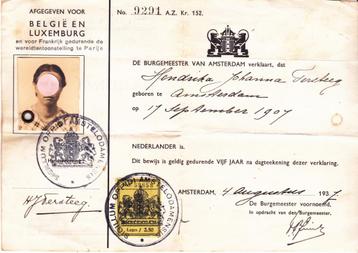 AFGEGEVEN VOOR
BELGIË EN
LUXEMBURG
en voor Frankrijk gedurende de
wereldtentoonstelling te Parijs
No. 9291 A.Z. Kr. 152.
DE BURGEMEESTER VAN AMSTERDAM verklaart, dat
Hendrika Johanna Tersteeg
geboren te Amsterdam
op 17 September 1907
NEDERLANDER is.
Dit bewijs is geldig gedurende VIJF JAAR na dagteekening dezer verklaring.
AMSTERDAM, 4 Augustus 1937
De Burgemeester voornoemd,
In opdracht van den Burgemeester,
HJTersteeg
SIGILLUM OPPIDI AMSTELODAMENSIS
SIGILLUM OPPIDI AMSTELODAMENSIS
Leges f 2.50